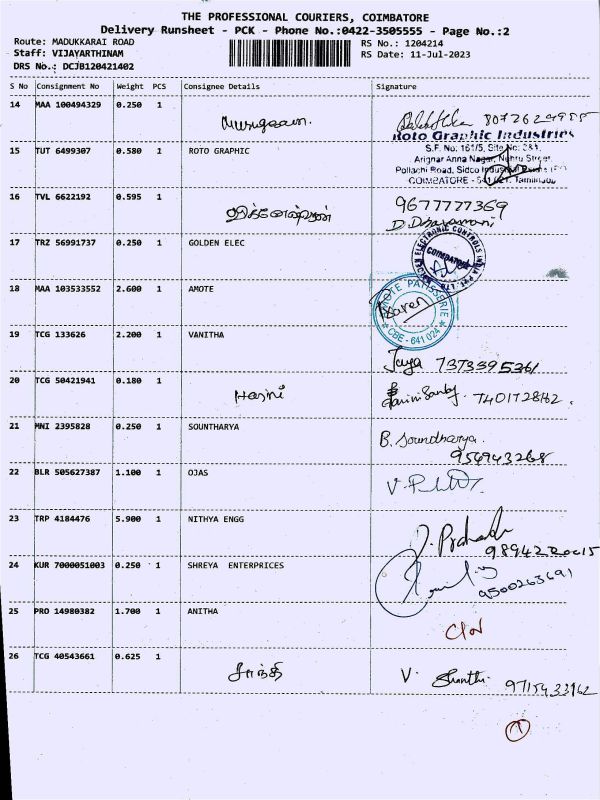 THE PROFESSIONAL COURIERS, COIMBATORE
Delivery Runsheet - PCK - Phone No.:0422-3505555 - Page No.:2
Route: MADUKKARAI ROAD
Staff: VIJAYARTHINAM
DRS No.: DCJB120421402
RS No.: 1204214
RS Date: 11-Jul-2023
S No Consignment No Weight PCS Consignee Details Signature
14 MAA 100494329 0.250 1 Murugesan.
Roto Graphic Industries
15 TUT 6499307 0.580 1 ROTO GRAPHIC
S.F. No: 161/5, Site No: 283,
Arignar Anna Nagar, Nehru Street,
Pollachi Road, Sidco Industrial
COIMBATORE - 641 021. Tamilnadu
16 TVL 6622192 0.595 1 9677777369
17 TRZ 56991737 0.250 1 GOLDEN ELEC
ELECTRONIC CONTROLS INDIA PVT. LTD.
COIMBATORE
18 MAA 103533552 2.600 1 AMOTE
AMOTE PATISSERIE
CBE - 641 024
19 TCG 133626 2.200 1 VANITHA
Jaya 7373595361
20 TCG 50421941 0.180 1 Harini 7401728162.
21 MNI 2395828 0.250 1 SOUNTHARYA B. Soundharya.
956943268
22 BLR 505627387 1.100 1 OJAS
23 TRP 4184476 5.900 1 NITHYA ENGG
J. Prakash
24 KUR 7000051003 0.250 1 SHREYA ENTERPRICES
9500263691
25 PRO 14980382 1.700 1 ANITHA
26 TCG 40543661 0.625 1 சாந்தி V. Shanthi 9715433162